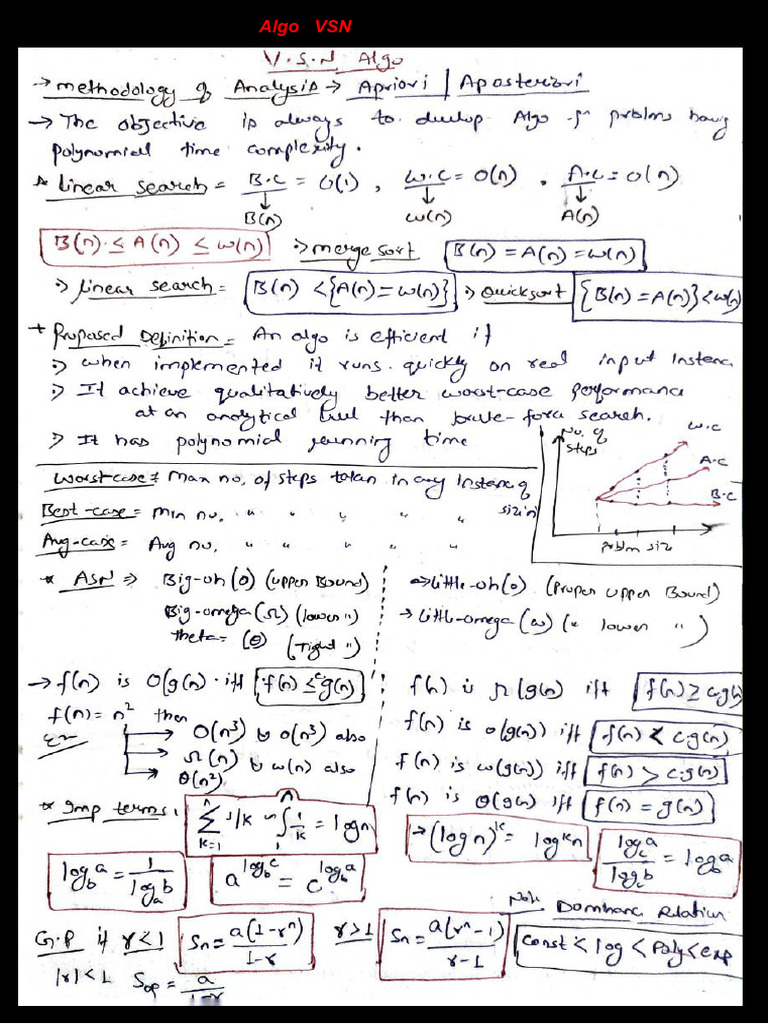 Algo VSN
V.S.N Algo
→ methodology of Analysis → Apriori | Aposteriori
→ The objective is always to develop Algo for problms having
polynomial time complexity.
* Linear search = B.C = O(1), W.C = O(n). A.C = O(n)
B(n) W(n) A(n)
B(n) ≤ A(n) ≤ W(n) :> merge sort B(n) = A(n) = W(n)
:> Linear search = B(n) < {A(n) = W(n)} :> Quicksort {B(n) = A(n)} < W(n)
+ Proposed Definition = An algo is efficient if
:> when implemented it runs quickly on real input instanc
:> It achieve qualitatively better worst-case performance
at an analytical level than brute-force search.
:> It has polynomial running time
No. of steps
W.C
A.C
B.C
problm size
Worst-case = Max no. of steps taken in any instance of size 'n'
Best-case = Min no. " " " "
Avg-case = Avg no. " " " "
* ASN ⇒ Big-oh (O) (Upper Bound) → Little-oh (o) (Proper Upper Bound)
Big-omega (Ω) (lower ") → Little-omega (ω) (" lower ")
theta = (θ) (Tight ")
→ f(n) is O(g(n)) iff f(n) ≤ c g(n) f(n) is Ω(g(n)) iff f(n) ≥ c.g(n)
f(n) = n² then f(n) is o(g(n)) iff f(n) < c.g(n)
Ex O(n³) & o(n³) also
Ω(n) & ω(n) also f(n) is ω(g(n)) iff f(n) > c.g(n)
θ(n²) f(n) is θ(g(n)) iff f(n) = g(n)
* Imp terms: ∑ₖ₌₁ⁿ 1/k ∽ ∫₁ⁿ 1/k = log n → (log n)ᵏ = logᵏn log_c a / log_c b = log_b a
log_b a = 1 / log_a b a^(log_b c) = c^(log_b a)
Note Dominanc Relation
G.P if r < 1 Sn = a(1-rⁿ) / 1-r r > 1 Sn = a(rⁿ-1) / r-1 Const < log < Poly < exp
|r| < 1 S∞ = a / 1-r